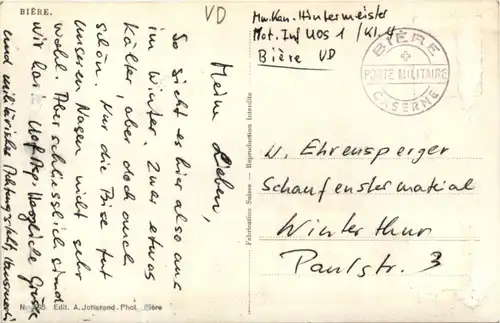 BIÈRE.
VD
Mw. Kan. Hintermeister
Mot. Inf UOS 1 / Kl. 4
Bière VD
BIÈRE
POSTE MILITAIRE
CASERNE
Meine Lieben,
So sieht es hier also aus
im Winter. Zwar etwas
kälter, aber doch auch
schön. Nur die Bise tut
unseren Nasen nicht sehr
wohl. Aber schliesslich sind
wir harte Herzliche Grüsse
und
W. Ehrensperger
Schaufenstermaterial
Winterthur
Paulstr. 3
Fabrication Suisse - Reproduction Interdite
Edit. A. Jotterand. Phot. Bière